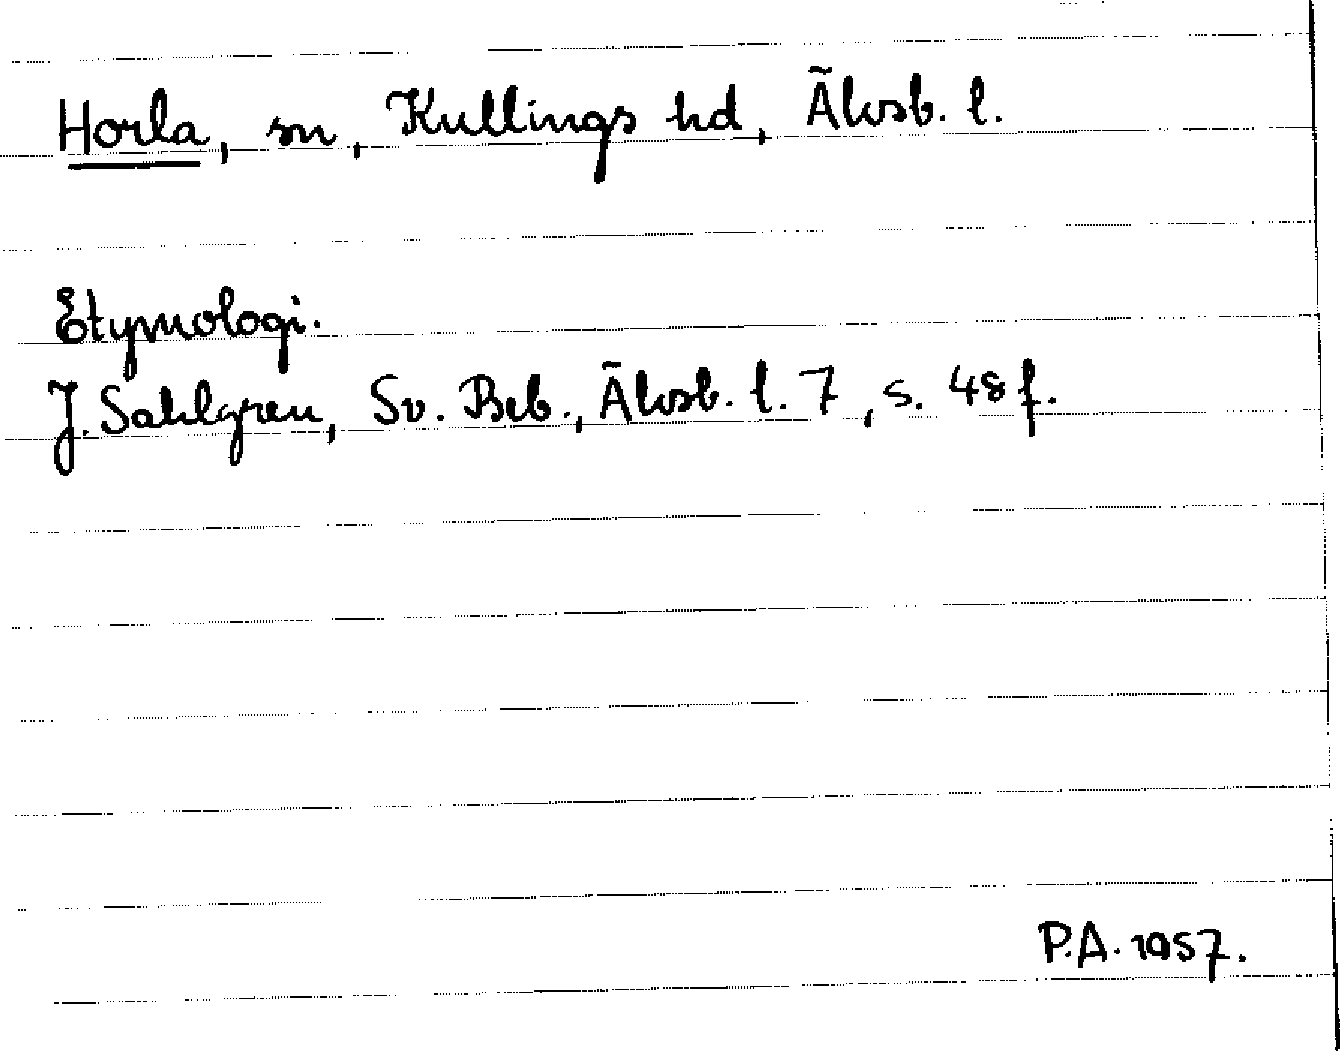 Horla, sn, Kullings hd, Älvsb. l.
Etymologi.
J. Sahlgren, Sv. Beb., Älvsb. l. 7, s. 48 f.
P.A. 1957.